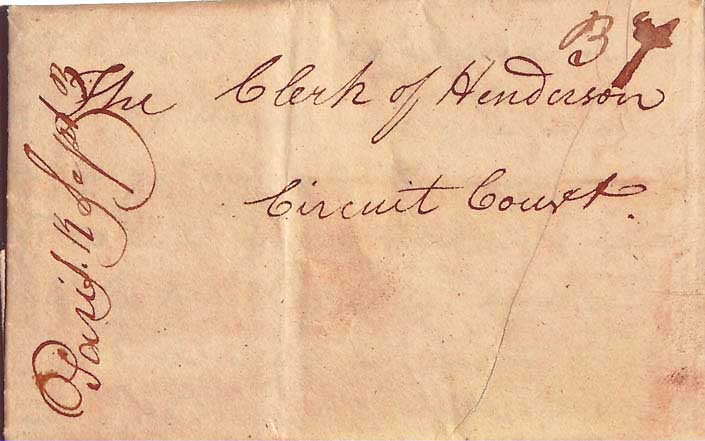 The Clerk of Henderson
Circuit Court.
Paris. K Sept 13